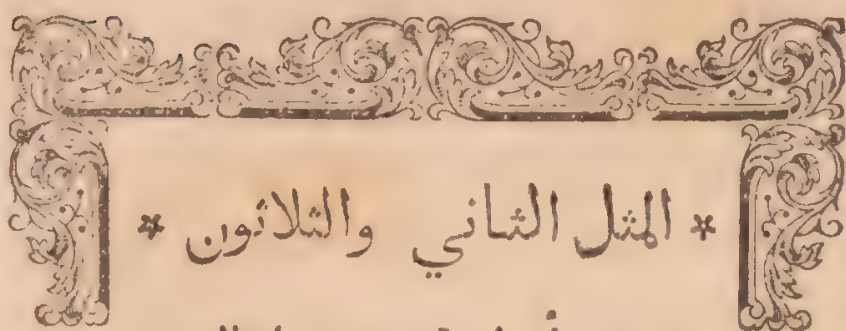 * المثل الثاني والثلاثون *